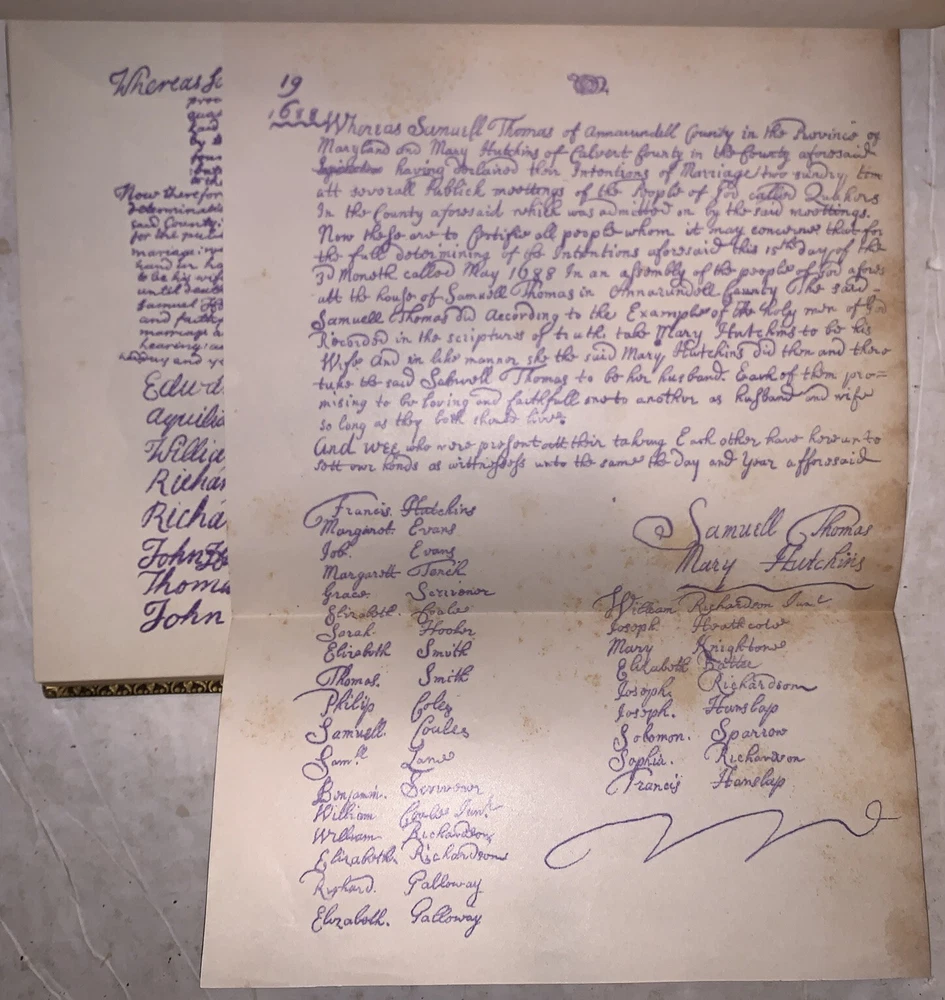 19
1688
Whereas Samuell Thomas of Annarundell County in the Province of
Maryland and Mary Hutchins of Calvert County in the County aforesaid
having declared their Intentions of Marriage two sundry tim
att severall Publick meettings of the People of God called Quakers
In the County aforesaid which was admitted on by the said meettings.
Now these are to Certifie all people whom it may concerne that for
the full determining of the Intentions aforesaid this 15th day of the
3d Moneth called May 1688 In an assembly of the people of God afores
att the house of Samuell Thomas in Annarundell County The said -
Samuell Thomas did According to the Example of the Holy men of God
Recorded in the scriptures of truth take Mary Hutchins to be his
Wife And in like manner she the said Mary Hutchins did then and there
take the said Samuell Thomas to be her husband. Each of them pro=
mising to be Loving and faithfull one to another as husband and wife
so long as they both should live.
And wee who were present att their taking Each other have hereunto
sett our hands as wittnesses unto the same the day and Year afforesaid
Samuell Thomas
Mary Hutchins
Francis Hutchins
Margaret Evans
Job. Evans
Margarett Tench
Grace Scrivener
Elizabeth Coale
Sarah Hooker
Elizabeth Smith
Thomas. Smith
Philip Coles
Samuell. Coales
Sam.ll Lane
Benjamin. Scrivener
William Coale Junr
William Richardson
Elizabeth Richardson
Richard. Galloway
Elizabeth. Galloway
William Richardson Junr
Joseph Heathcote
Mary Knightone
Elizabeth Battee
Joseph. Richardson
Joseph. Hanslap
Solomon. Sparrow
Sophia. Richardson
Francis Hanslap
Whereas
Now therefor
determinati
said County
for the
marriage
hand in ha
to be his wife
until death
Samuel
and furth
marriage a
hearing
and
Edwa
Aquila
Willia
Richar
Richa
John
Thoma
John